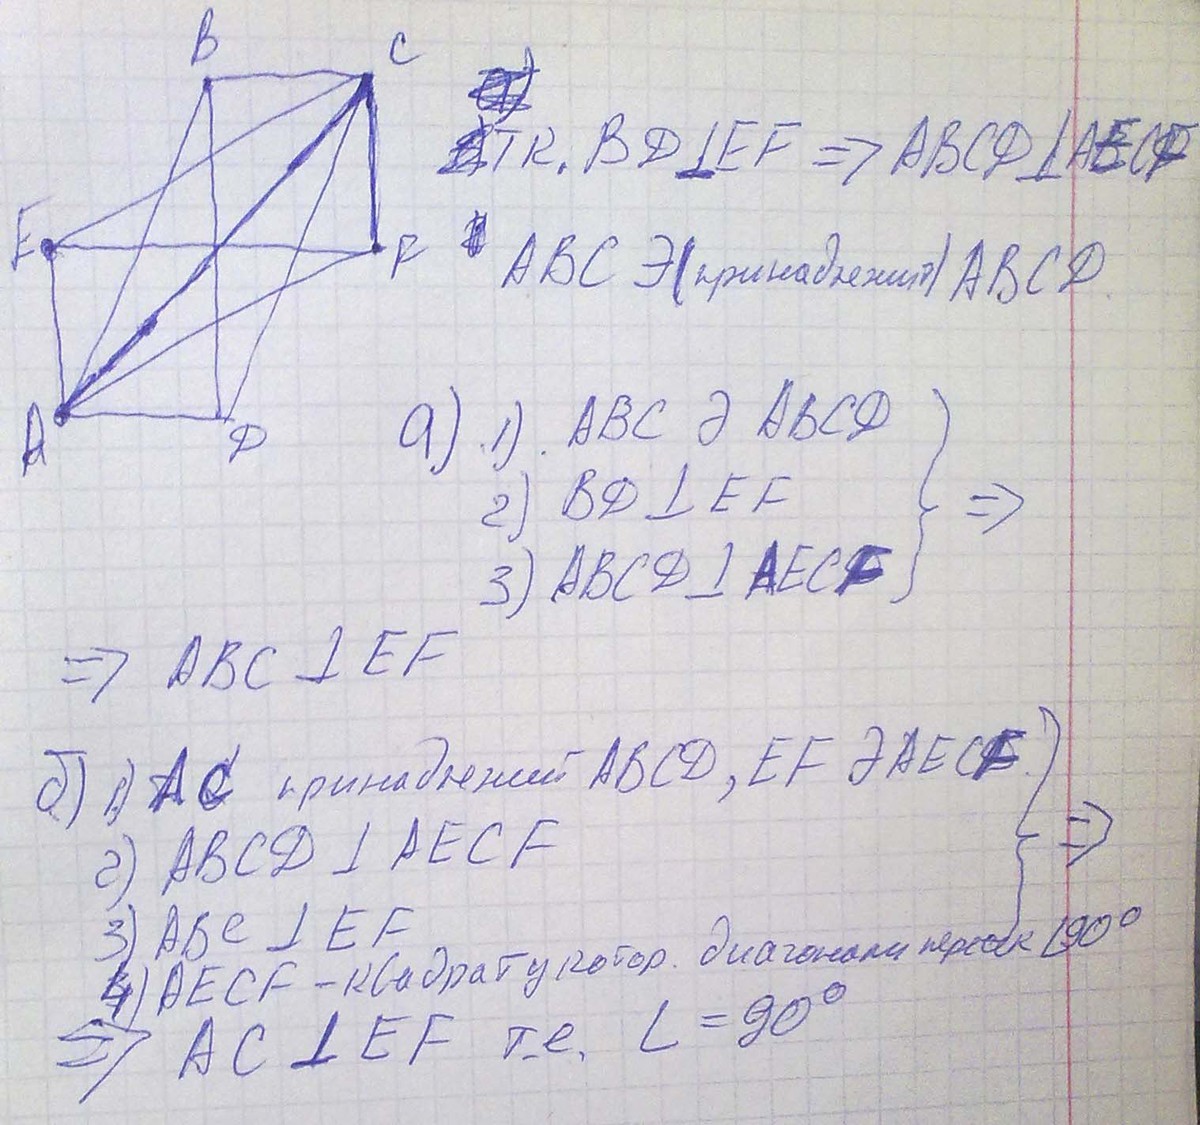 B C
E F
A D
т.к. BD⊥EF => ABCD⊥AECF
ABC Э(принадлежит) ABCD
а) 1). ABC Э ABCD
2) BD⊥EF
3) ABCD⊥AECF
=>
=> ABC⊥EF
б) 1) AC принадлежит ABCD, EF Э AECF.
2) ABCD⊥AECF
=>
3) ABC⊥EF
4) AECF - квадрат у котор. диагонали пересек ∠90°
=> AC⊥EF т.е. ∠=90°